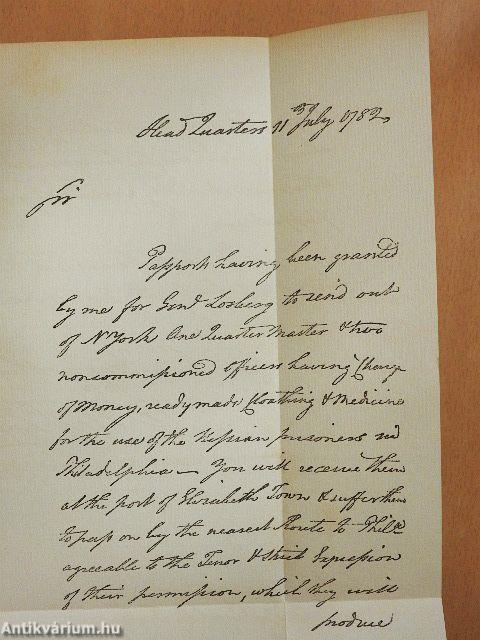 Head Quarters 11th July 1782
Sir
Passports having been granted
by me for Genl Losberg to send out
of N York One Quarter Master & two
noncommissioned officers having Charge
of Money, ready made Cloathing & Medicine
for the use of the Hessian prisoners in
Philadelphia — You will receive them
at the port of Elizabeth Town & suffer them
to pass on by the nearest Route to Phila
agreeable to the Tenor & strict Expression
of their permission, which they will
produce
Antikvárium.hu